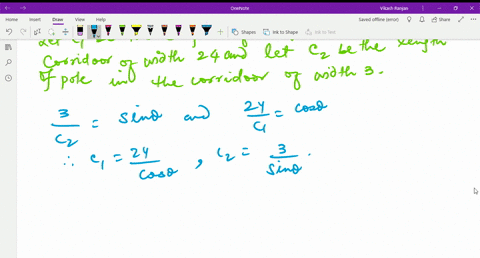 OneNote
Vikash Ranjan
File Home Insert Draw View Help
Saved offline (error)
Share
Shapes Ink to Shape Ink to Text
corridor of width 24 and let C2 be the length
of pole in the corridor of width 3.
3/C2 = sinθ and 24/C1 = cosθ
∴ C1 = 24/cosθ , C2 = 3/sinθ .